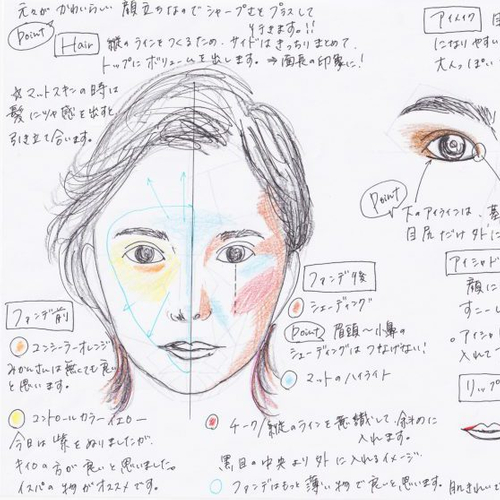 元々が かわいらしい 顔立ちなので シャープさを プラスして
行きます。!!
point
Hair
縦のラインをつくるため、サイドはきっちりまとめて、
トップにボリュームを出します。⇒面長の印象に!
☆マットスキンの時は
髪にツヤ感を出すと、
引き立て合います。
アイメイク
になりやすい
大人っぽい
point
下のアイラインは、
目尻だけ
アイシャド
顔に
すこーし
アイシャ
入れて
リップ
ファンデ前
コンシーラーオレンジ
みかんさいは無くても良い
と思います。
コントロールカラーイエロー
今日は紫をぬりましたが、
キイロの方が良いと思いました。
イスパの物がオススメです。
ファンデ後
シェーディング
point 眉頭〜小鼻の
シェーディングはつなげない!
マットのハイライト
チーク/縦のラインを意識して、斜めに
入れます。
黒目の中央より外に入れるイメージ
ファンデはもっと薄い物で良いと思います。